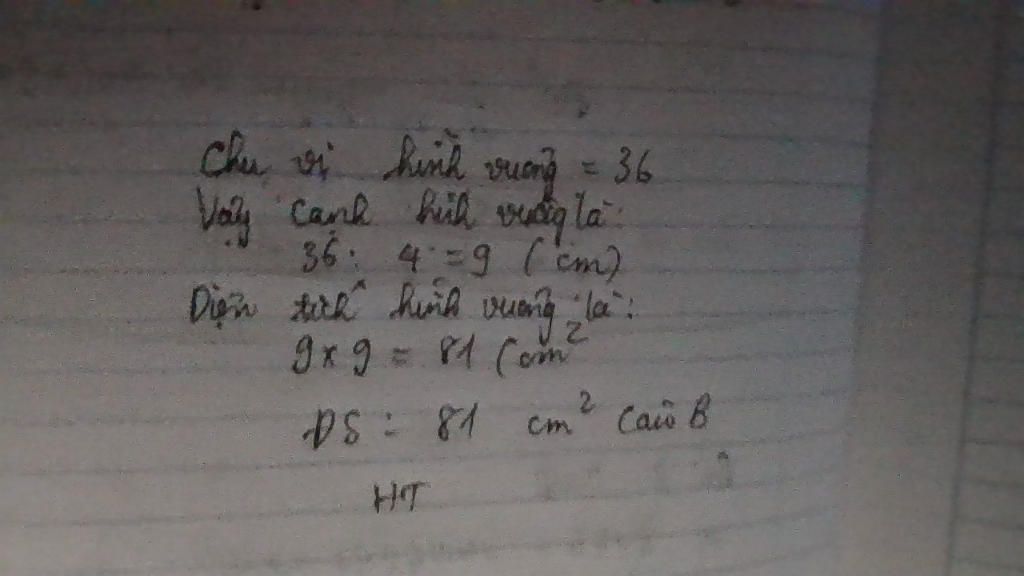 Chu vi hình vuông = 36
Vậy cạnh hình vuông là:
36 : 4 = 9 (cm)
Diện tích hình vuông là:
9 x 9 = 81 (cm²
ĐS : 81 cm² Câu B
HT